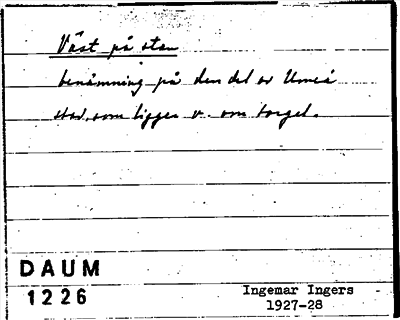 Väst på stan
benämning på den del av Umeå
stad, som ligger v. om torget.
DAUM
1226
Ingemar Ingers
1927-28